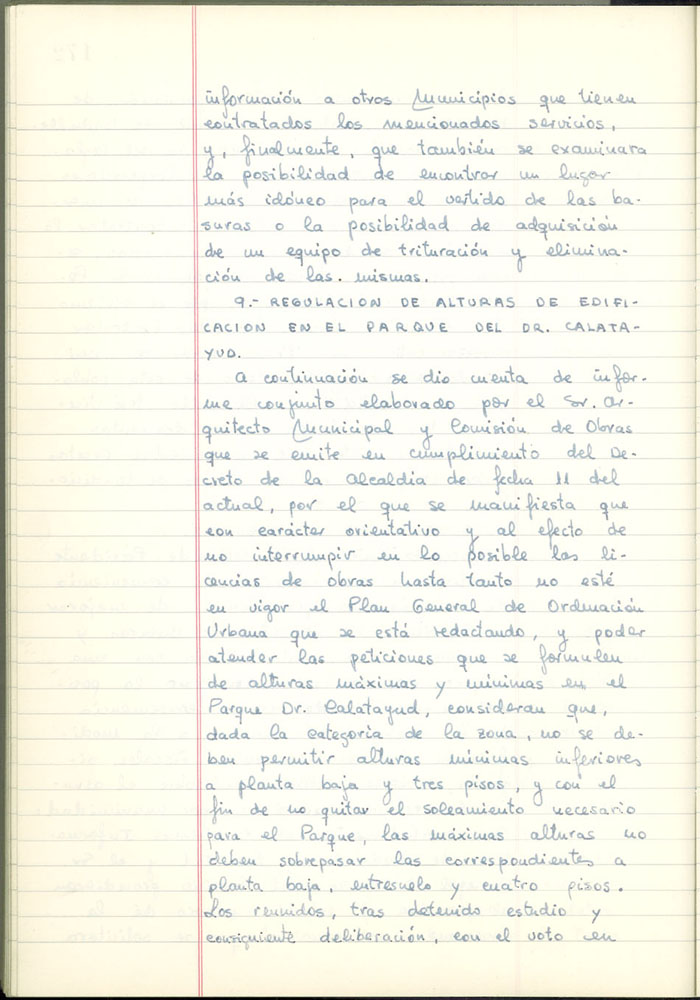 información a otros Municipios que tienen
contratados los mencionados servicios,
y, finalmente, que también se examinara
la posibilidad de encontrar un lugar
más idóneo para el vertido de las ba-
suras o la posibilidad de adquisición
de un equipo de trituración y elimina-
ción de las. mismas.
9.- REGULACION DE ALTURAS DE EDIFI-
CACION EN EL PARQUE DEL DR. CALATA-
YUD.
A continuación se dio cuenta de infor-
me conjunto elaborado por el Sr. Ar-
quitecto Municipal y Comisión de Obras
que se emite en cumplimiento del De-
creto de la Alcaldia de fecha 11 del
actual, por el que se manifiesta que
con carácter orientativo y al efecto de
no interrumpir en lo posible las li-
cencias de obras hasta tanto no esté
en vigor el Plan General de Ordenación
Urbana que se está redactando, y poder
atender las peticiones que se formulen
de alturas máximas y mínimas en el
Parque Dr. Calatayud, consideran que,
dada la categoría de la zona, no se de-
ben permitir alturas mínimas inferiores
a planta baja y tres pisos, y con el
fin de no quitar el soleamiento necesario
para el Parque, las máximas alturas no
deben sobrepasar las correspondientes a
planta baja, entresuelo y cuatro pisos.
Los reunidos, tras detenido estudio y
consiguiente deliberación, con el voto en